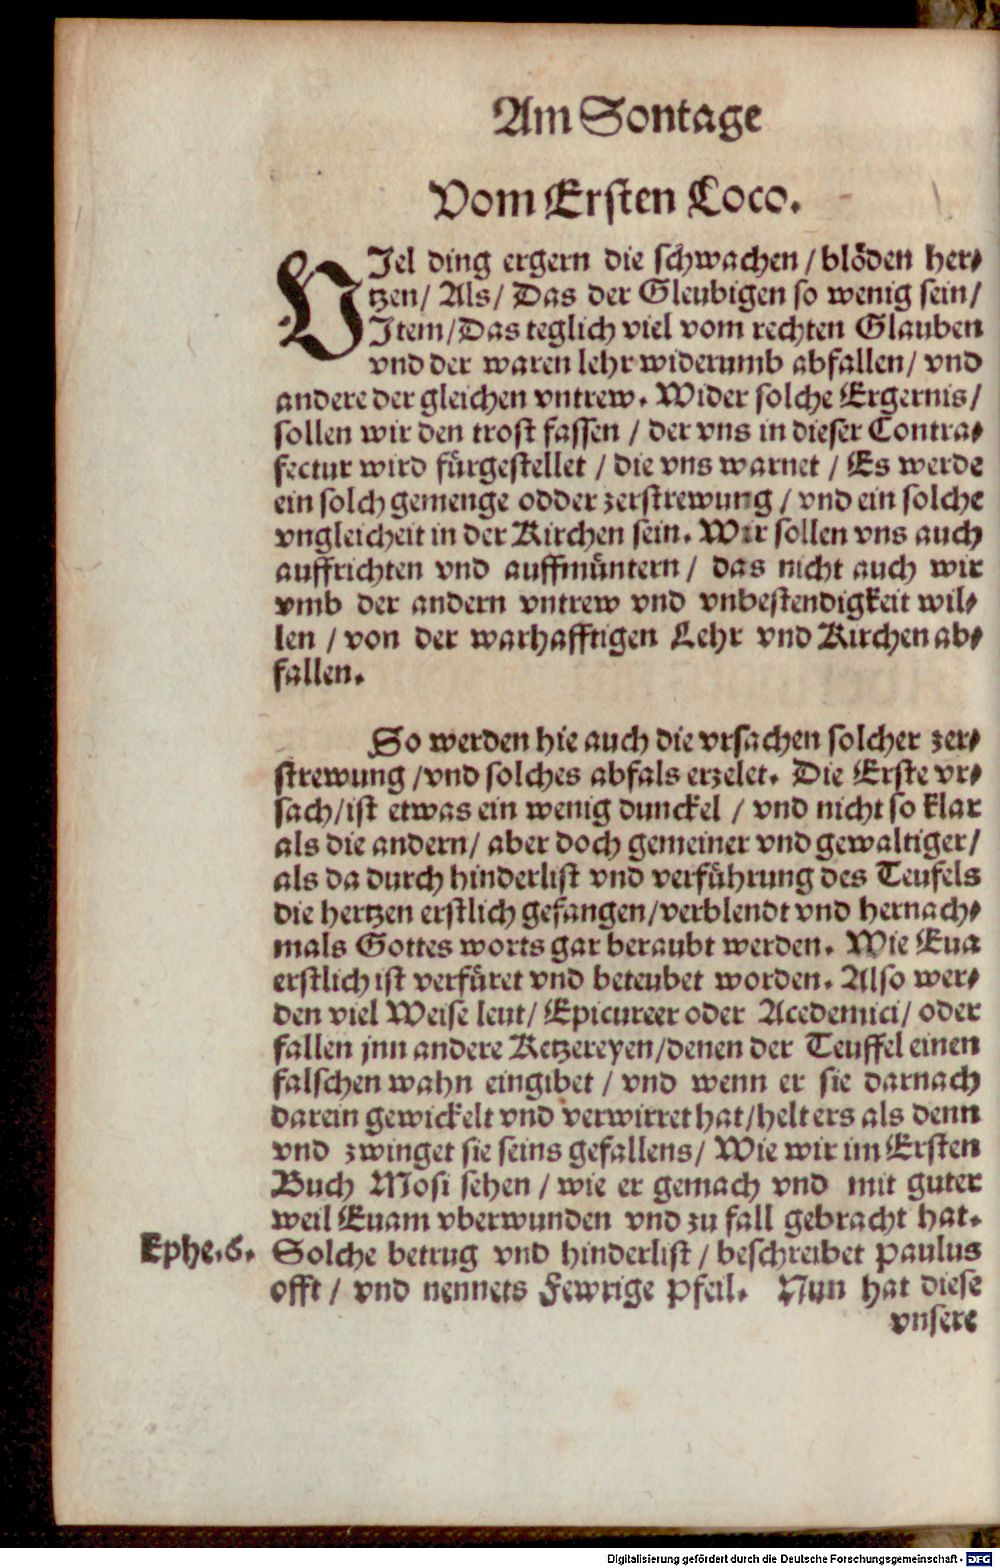 Am Sontage
Vom Ersten Loco.
VJel ding ergern die schwachen / blöden her⸗
tzen/ Als/ Das der Gleubigen so wenig sein/
Jtem/Das teglich viel vom rechten Glauben
vnd der waren lehr widerumb abfallen/ vnd
andere der gleichen vntrew. Wider solche Ergernis/
sollen wir den trost fassen / der vns in dieser Contra⸗
fectur wird fürgestellet / die vns warnet / Es werde
ein solch gemenge odder zerstrewung / vnd ein solche
vngleicheit in der Kirchen sein. Wir sollen vns auch
auffrichten vnd auffmüntern/ das nicht auch wir
vmb der andern vntrew vnd vnbestendigkeit wil⸗
len / von der warhafftigen Lehr vnd Kirchen ab⸗
fallen.
So werden hie auch die vrsachen solcher zer⸗
strewung /vnd solches abfals erzelet. Die Erste vr⸗
sach/ist etwas ein wenig dunckel / vnd nicht so klar
als die andern/ aber doch gemeiner vnd gewaltiger/
als da durch hinderlist vnd verführung des Teufels
die hertzen erstlich gefangen/verblendt vnd hernach⸗
mals Gottes worts gar beraubt werden. Wie Eua
erstlich ist verfüret vnd beteubet worden. Also wer⸗
den viel Weise leut/ Epicureer oder Acedemici/ oder
fallen jnn andere Ketzereyen/denen der Teuffel einen
falschen wahn eingibet / vnd wenn er sie darnach
darein gewickelt vnd verwirret hat/helt ers als denn
vnd zwinget sie seins gefallens/ Wie wir im Ersten
Buch Mosi sehen / wie er gemach vnd mit guter
weil Euam vberwunden vnd zu fall gebracht hat.
Ephe.6. Solche betrug vnd hinderlist / beschreibet Paulus
offt / vnd nennets Fewrige Pfeil. Nun hat diese
vnsere
Digitalisierung gefördert durch die Deutsche Forschungsgemeinschaft - DFG